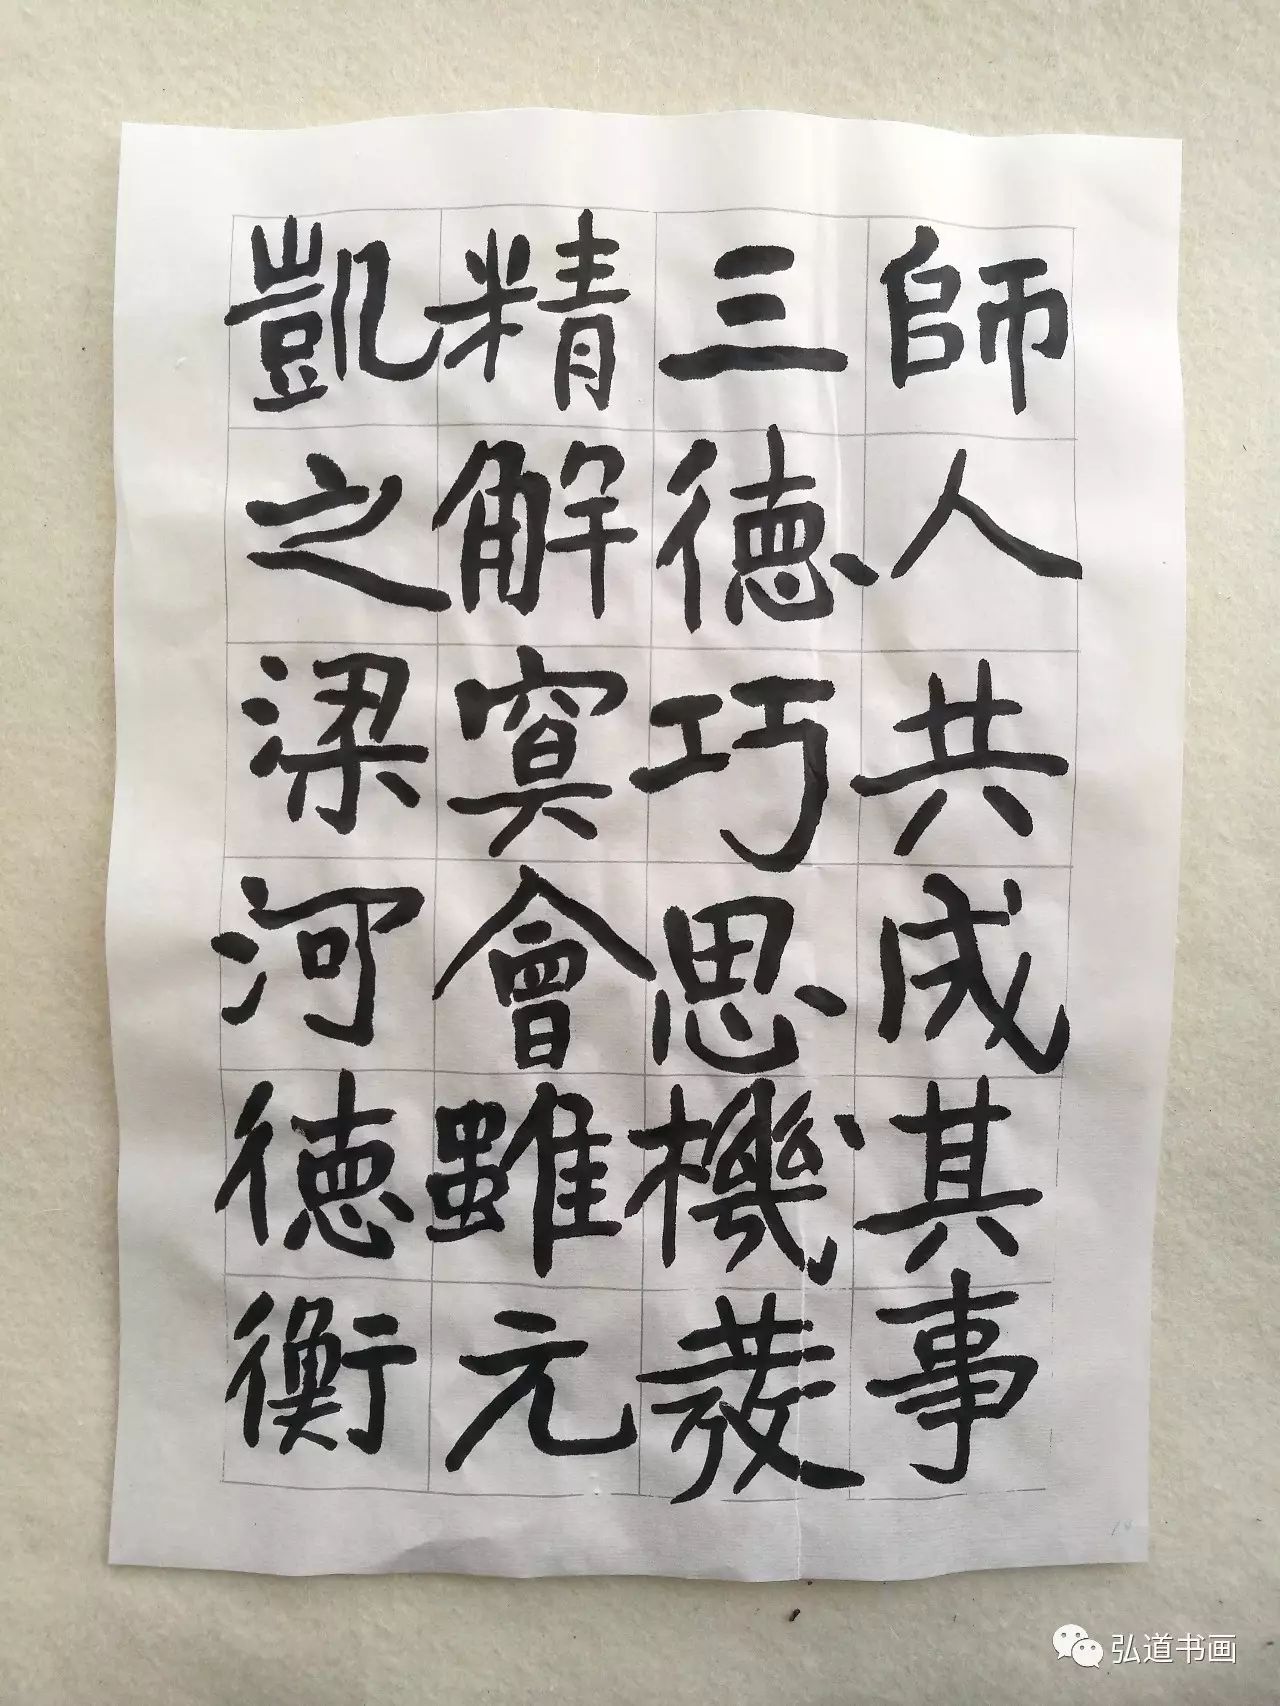 師人共成其事
三德巧思機發
精解冥會雖元
凱之梁河德衡
弘道书画